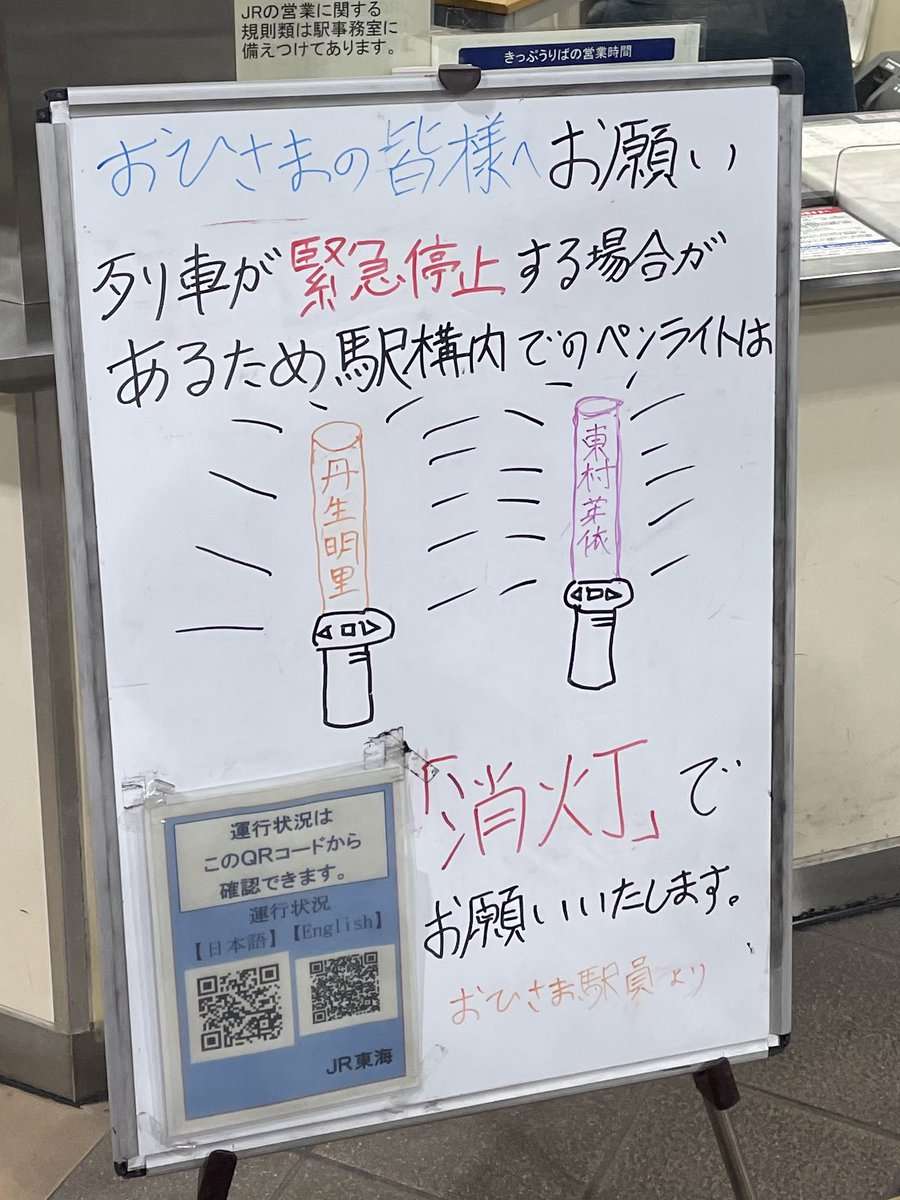 JRの営業に関する
規則類は駅事務室に
備えつけてあります。
きっぷうりばの営業時間
おひさまの皆様へお願い
列車が緊急停止する場合が
あるため駅構内でのペンライトは
丹生明里
東村芽依
「消灯」で
お願いいたします。
おひさま駅員より
運行状況は
このQRコードから
確認できます。
運行状況
【日本語】【English】
JR東海